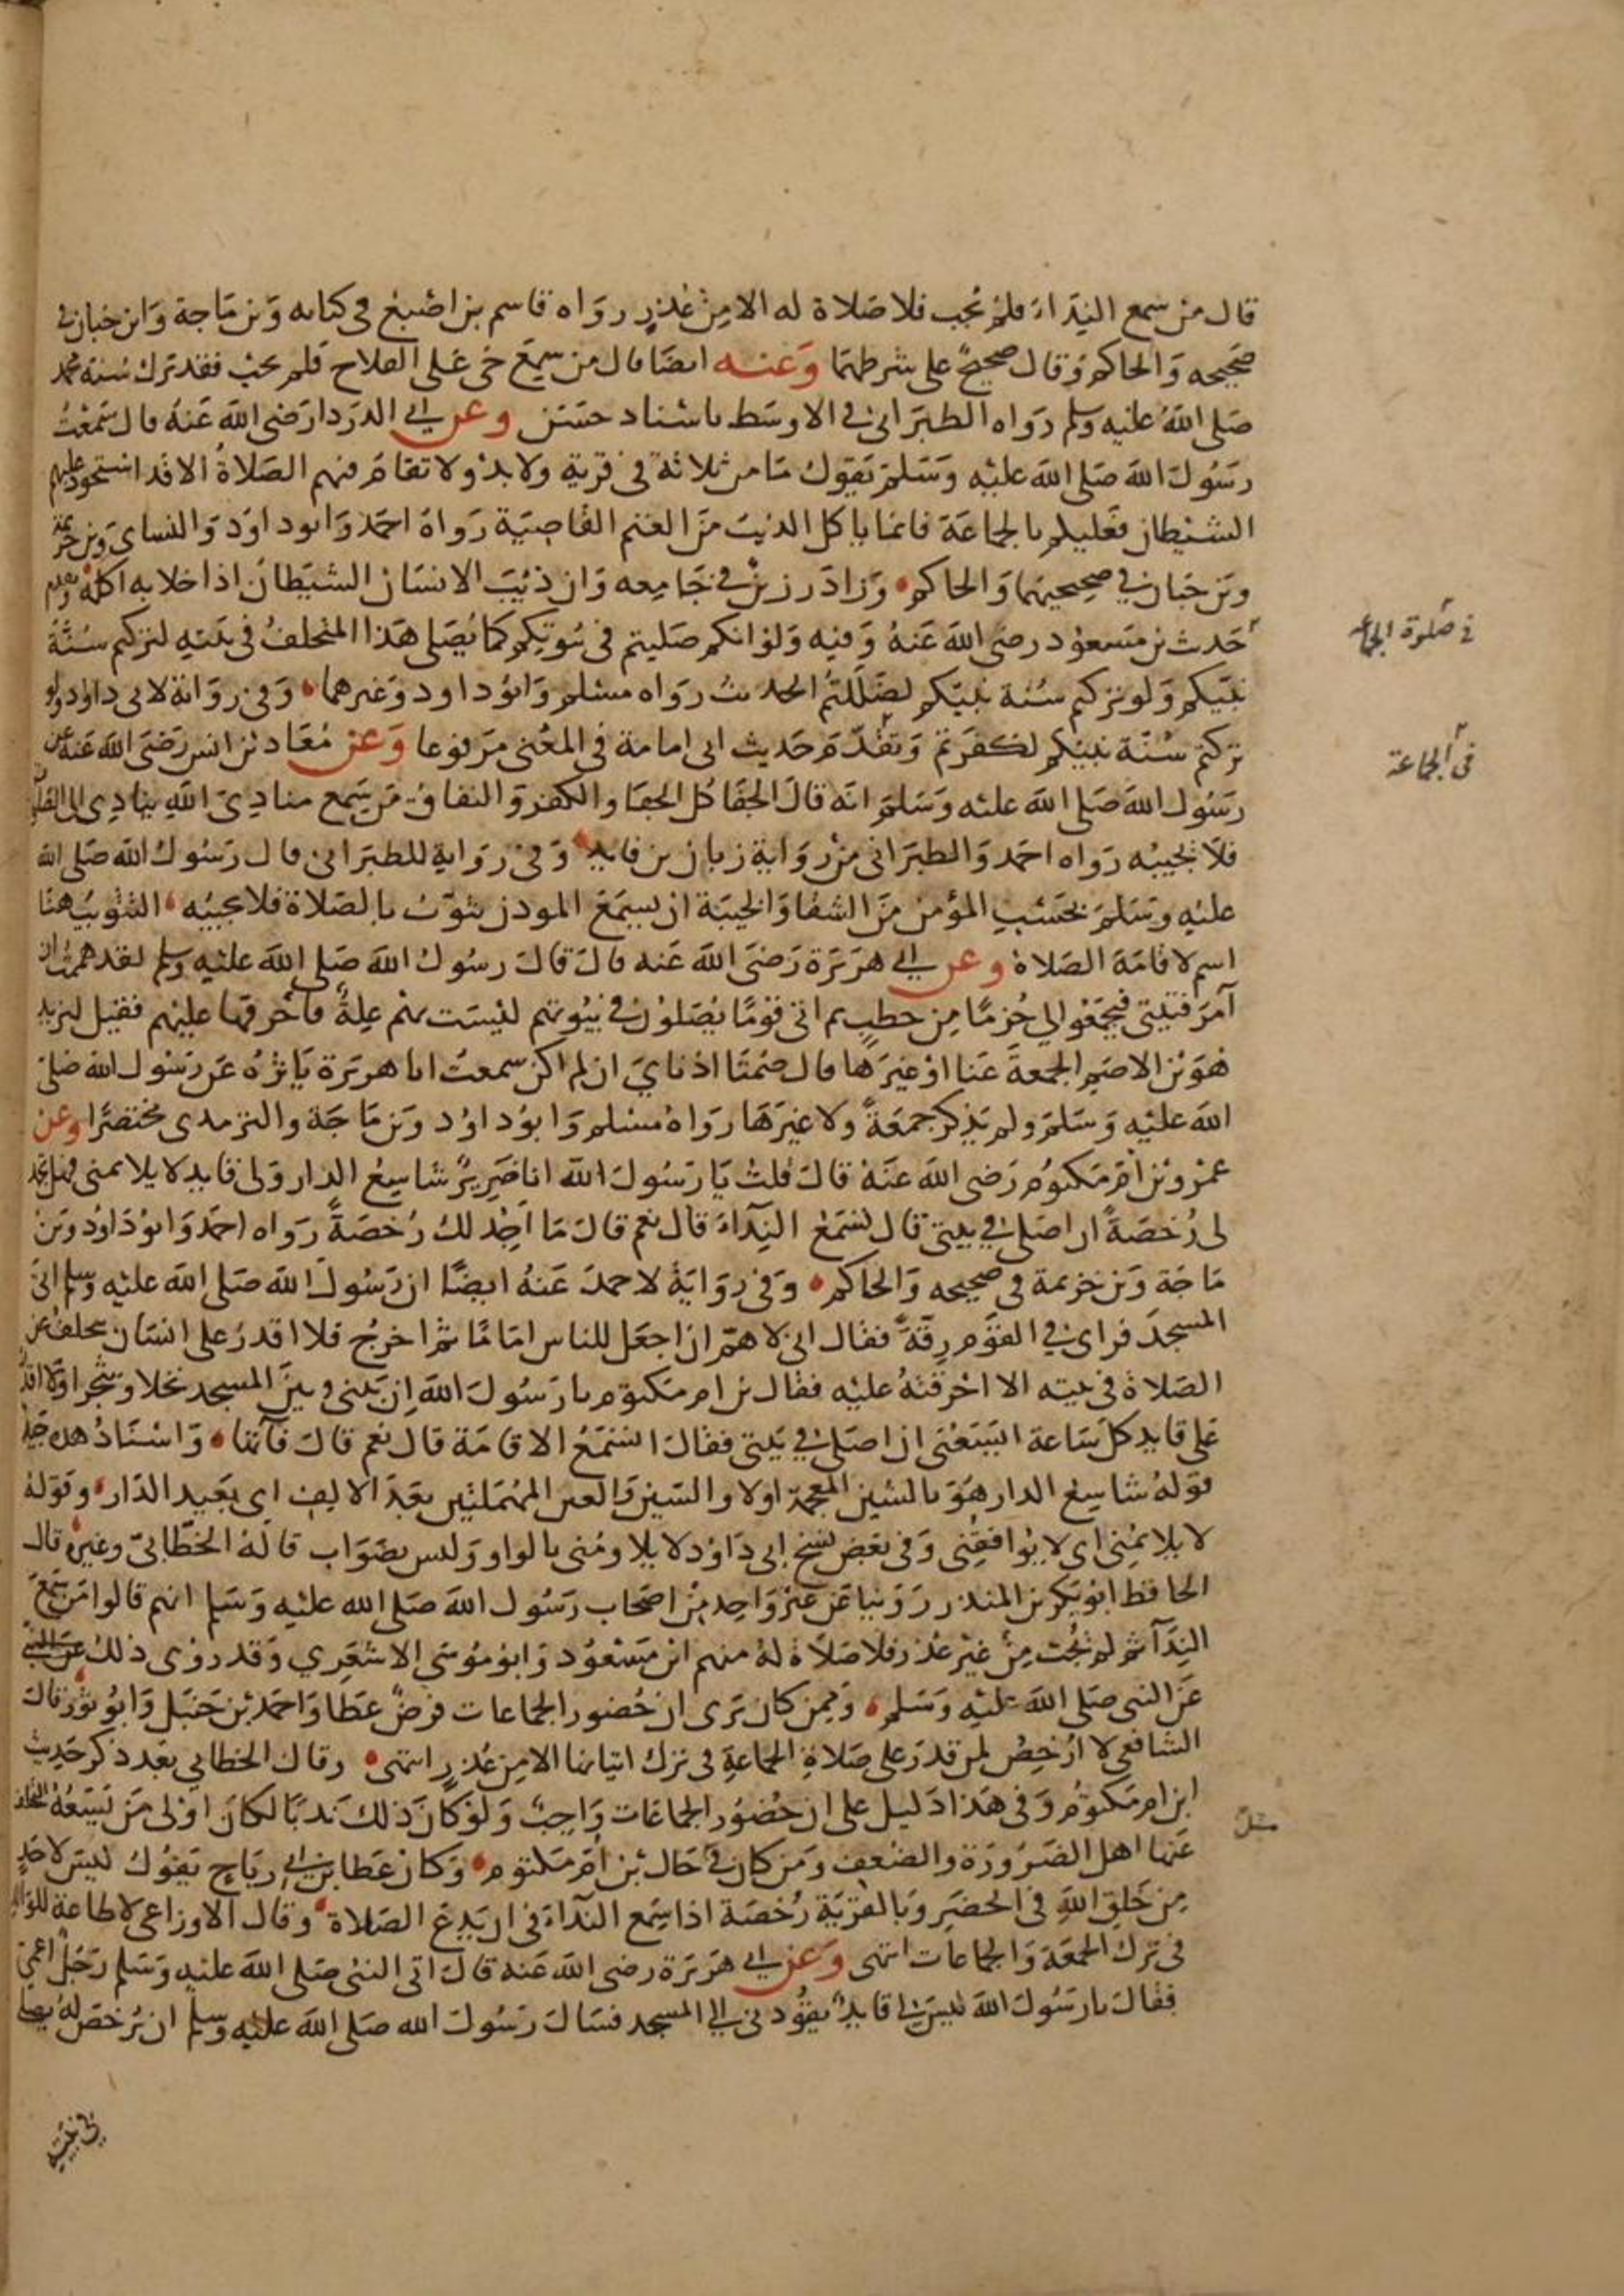 قال من سمع النداء فلم يجب فلا صلاة له الا من عذر رواه قاسم بن اصبغ في كتابه وبن ماجة وابن حبان في
صحيحه والحاكم وقال صحيح على شرطهما وعنه ايضا قال من سمع حي على الفلاح فلم يجب فقد ترك سنة محمد
صلى الله عليه وسلم رواه الطبراني في الاوسط باسناد حسن وعن ابي الدردا رضي الله عنه قال سمعت
رسول الله صلى الله عليه وسلم يقول ما من ثلاثة في قرية ولا بدو ولا تقام فيهم الصلاة الا قد استحوذ عليهم
الشيطان فعليكم بالجماعة فانما ياكل الذيب من الغنم القاصية رواه احمد وابو داود والنساي وبن خزيمة
وبن حبان في صحيحيهما والحاكم وزاد رزين في جامعه وان ذيب الانسان الشيطان اذا خلا به اكله وتقدم
حديث بن مسعود رضي الله عنه وفيه ولو انكم صليتم في بيوتكم كما يصلي هذا المتخلف في بيته لتركتم سنة
نبيكم ولو تركتم سنة نبيكم لضللتم الحديث رواه مسلم وابو داود وغيرهما وفي رواية لابي داود ولو
تركتم سنة نبيكم لكفرتم وتقدم حديث ابي امامة في المعنى مرفوعا وعن معاد بن انس رضي الله عنه عن
رسول الله صلى الله عليه وسلم انه قال الجفا كل الجفا والكفر والنفاق من سمع منادي الله ينادي الى الصلاة
فلا يجيبه رواه احمد والطبراني من رواية زبان بن فايد وفي رواية للطبراني قال رسول الله صلى الله
عليه وسلم بحسب المؤمن من الشقا والخيبة ان يسمع المودن يثوب بالصلاة فلا يجيبه التثويب هنا
اسم لاقامة الصلاة وعن ابي هريرة رضي الله عنه قال قال رسول الله صلى الله عليه وسلم لقد هممت ان
آمر فتيتي فيجمعوا لي حزما من حطب ثم اتي قوما يصلون في بيوتهم ليست بهم علة فاحرقها عليهم فقيل ليزيد
هو بن الاصم الجمعة عنا او غيرها قال صمتا اذناي ان لم اكن سمعت ابا هريرة ياثره عن رسول الله صلى
الله عليه وسلم ولم يذكر جمعة ولا غيرها رواه مسلم وابو داود وبن ماجة والترمدي مختصرا وعن
عمرو بن ام مكتوم رضي الله عنه قال قلت يا رسول الله انا ضرير شاسع الدار ولي قايد لا يلايمني فهل تجد
لي رخصة ان اصلي في بيتي قال تسمع النداء قال نعم قال ما اجد لك رخصة رواه احمد وابو داود وبن
ماجة وبن خزيمة في صحيحه والحاكم وفي رواية لاحمد عنه ايضا ان رسول الله صلى الله عليه وسلم اتى
المسجد فراى في القوم رقة فقال اني لاهم ان اجعل للناس اماما ثم اخرج فلا اقدر على انسان يتخلف عن
الصلاة في بيته الا احرقته عليه فقال بن ام مكتوم يا رسول الله ان بيني وبين المسجد نخلا وشجرا ولا اقدر
على قايد كل ساعة ايسعني ان اصلي في بيتي فقال اتسمع الاقامة قال نعم قال فآتها واسناد هذه جيد
قوله شاسع الدار هو بالشين المعجمة اولا والسين والعين المهملتين بعد الالف اي بعيد الدار وقوله
لا يلايمني اي لا يوافقني وفي بعض نسخ ابي داود لا يلاومني بالواو وليس بصواب قاله الخطابي وغيره قال
الحافظ ابو بكر بن المنذر روينا عن غير واحد من اصحاب رسول الله صلى الله عليه وسلم انهم قالوا من سمع
النداء ثم لم يجب من غير عذر فلا صلاة له منهم ابن مسعود وابو موسى الاشعري وقد روي ذلك عن النبي
عن النبي صلى الله عليه وسلم وممن كان يرى ان حضور الجماعات فرض عطا واحمد بن حنبل وابو ثور قال
الشافعي لا ارخص لمن قدر على صلاة الجماعة في ترك اتيانها الا من عذر انتهى وقال الخطابي بعد ذكر حديث
ابن ام مكتوم وفي هذا دليل على ان حضور الجماعات واجب ولو كان ذلك ندبا لكان اولى من يسعه التخلف
عنها اهل الضرورة والضعف ومن كان في حال بن ام مكتوم وكان عطا بن ابي رياح يقول ليس لاحد
من خلق الله في الحضر وبالقرية رخصة اذا سمع النداء في ان يدع الصلاة وقال الاوزاعي لا طاعة للوالد
في ترك الجمعة والجماعات انتهى وعن ابي هريرة رضي الله عنه قال اتى النبي صلى الله عليه وسلم رجل اعمى
فقال يا رسول الله ليس لي قايد يقودني الي المسجد فسال رسول الله صلى الله عليه وسلم ان يرخص له يصلي
في بيته
في صلوة الجماعه
في الجماعة